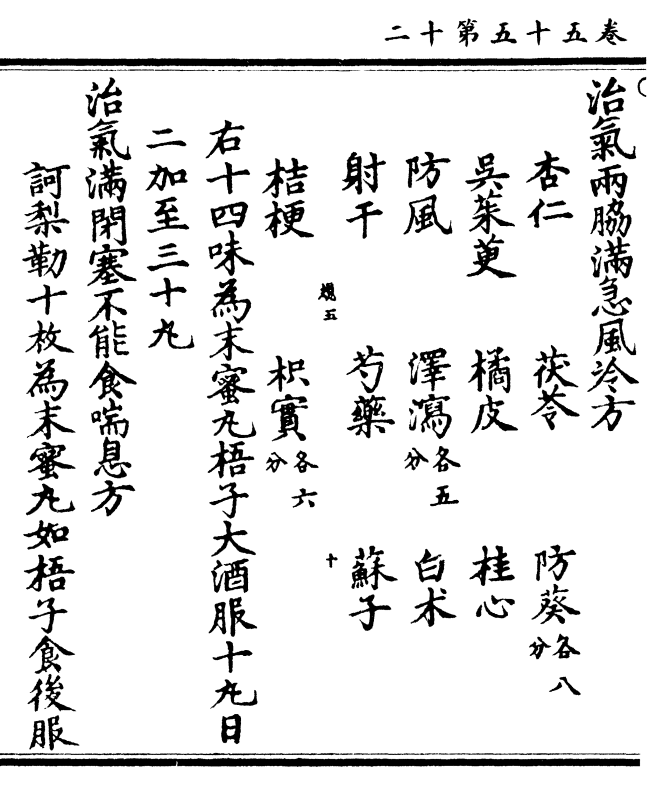 卷五十五第十二
治氣兩脇滿急風冷方
杏仁 茯苓 防葵各八分
吳茱萸 橘皮 桂心
防風 澤瀉各五分 白术
射干 芍藥 蘇子
五 十
桔梗 枳實各六分
右十四味為末蜜丸梧子大酒服十丸日
二加至三十丸
治氣滿閉塞不能食喘息方
訶梨勒十枚為末蜜丸如梧子食後服